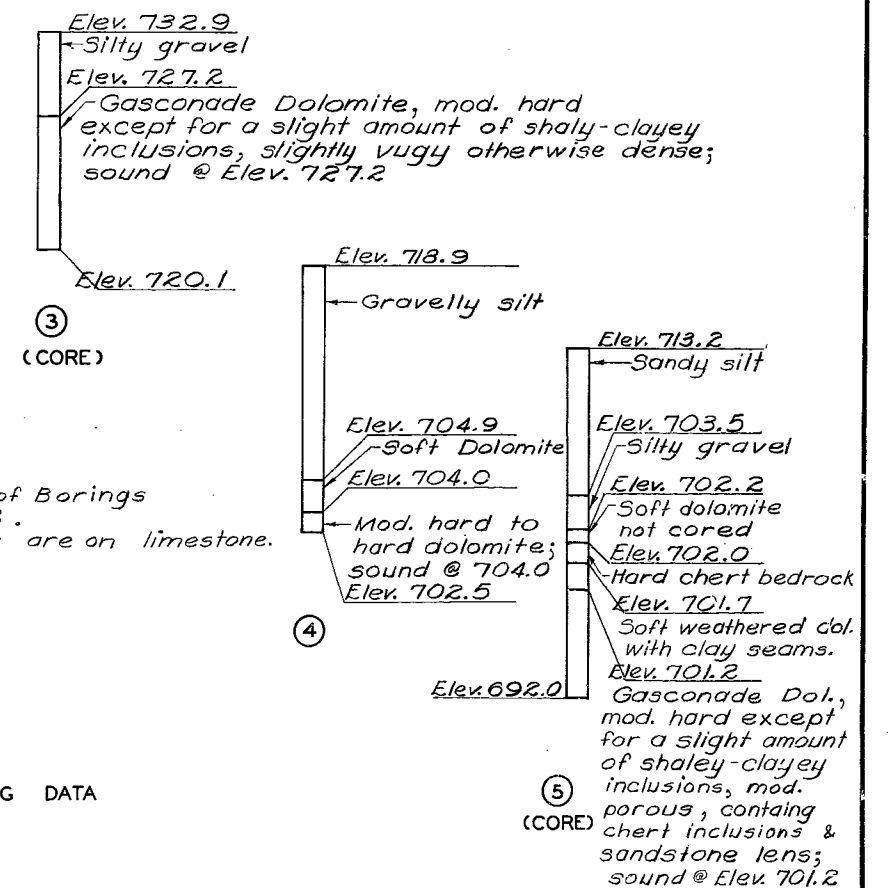 Elev. 732.9
Silty gravel
Elev. 727.2
Gasconade Dolomite, mod. hard
except for a slight amount of shaly-clayey
inclusions, slightly vugy otherwise dense;
sound @ Elev. 727.2
Elev. 720.1
3
(CORE)
Elev. 718.9
Gravelly silt
Elev. 704.9
Soft Dolomite
Elev. 704.0
Mod. hard to
hard dolomite;
sound @ 704.0
Elev. 702.5
4
of Borings
are on limestone.
G DATA
Elev. 713.2
Sandy silt
Elev. 703.5
Silty gravel
Elev. 702.2
Soft dolomite
not cored
Elev. 702.0
Hard chert bedrock
Elev. 701.7
Soft weathered dol.
with clay seams.
Elev. 701.2
Gasconade Dol.,
mod. hard except
for a slight amount
of shaley-clayey
inclusions, mod.
porous, containg
chert inclusions &
sandstone lens;
sound @ Elev. 701.2
Elev. 692.0
5
(CORE)